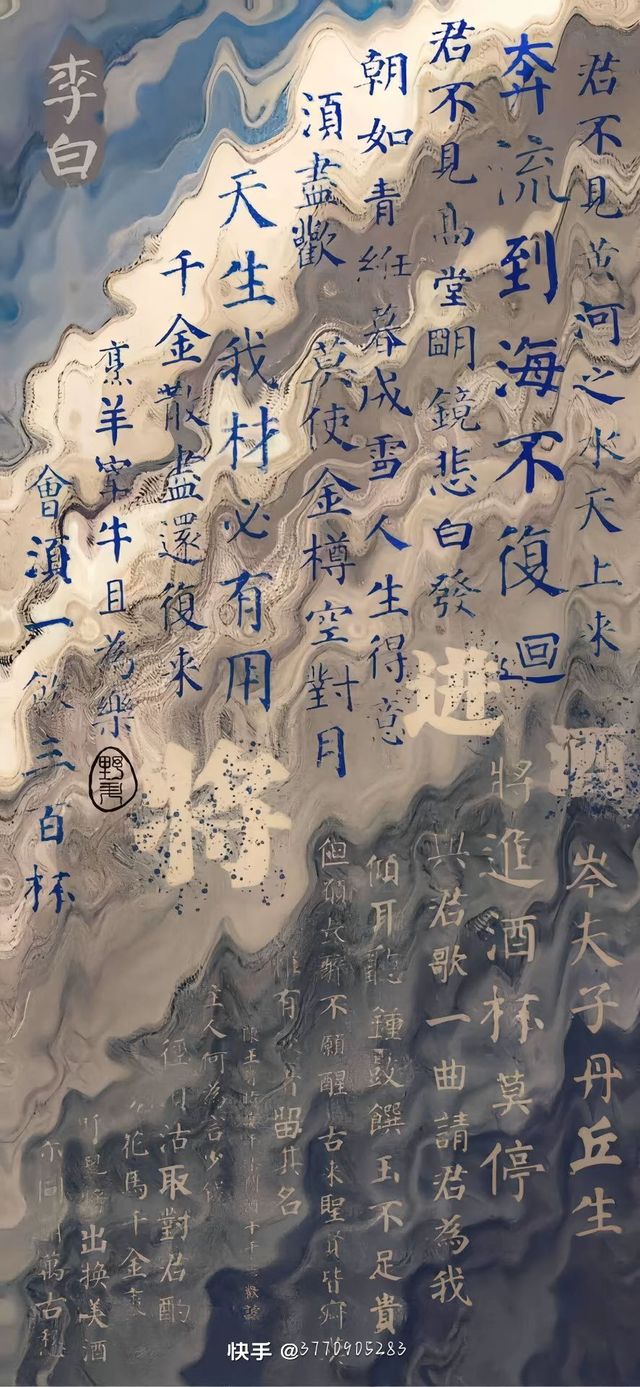 李白
君不見黄河之水天上来
奔流到海不復迴
君不見高堂明鏡悲白發
朝如青絲暮成雪人生得意
須盡歡 莫使金樽空對月
天生我材必有用
千金散盡還復来
烹羊宰牛且為樂
會須一飲三百杯
将进酒
岑夫子丹丘生
將進酒杯莫停
君歌一曲請君為我
傾耳聽鍾鼓饌玉不足貴
但願長醉不願醒古来聖賢皆
惟有者留其名
主人何為言少錢
徑沽取對君酌
花馬千金裘
將出换美酒
同萬古
快手 @3770905283